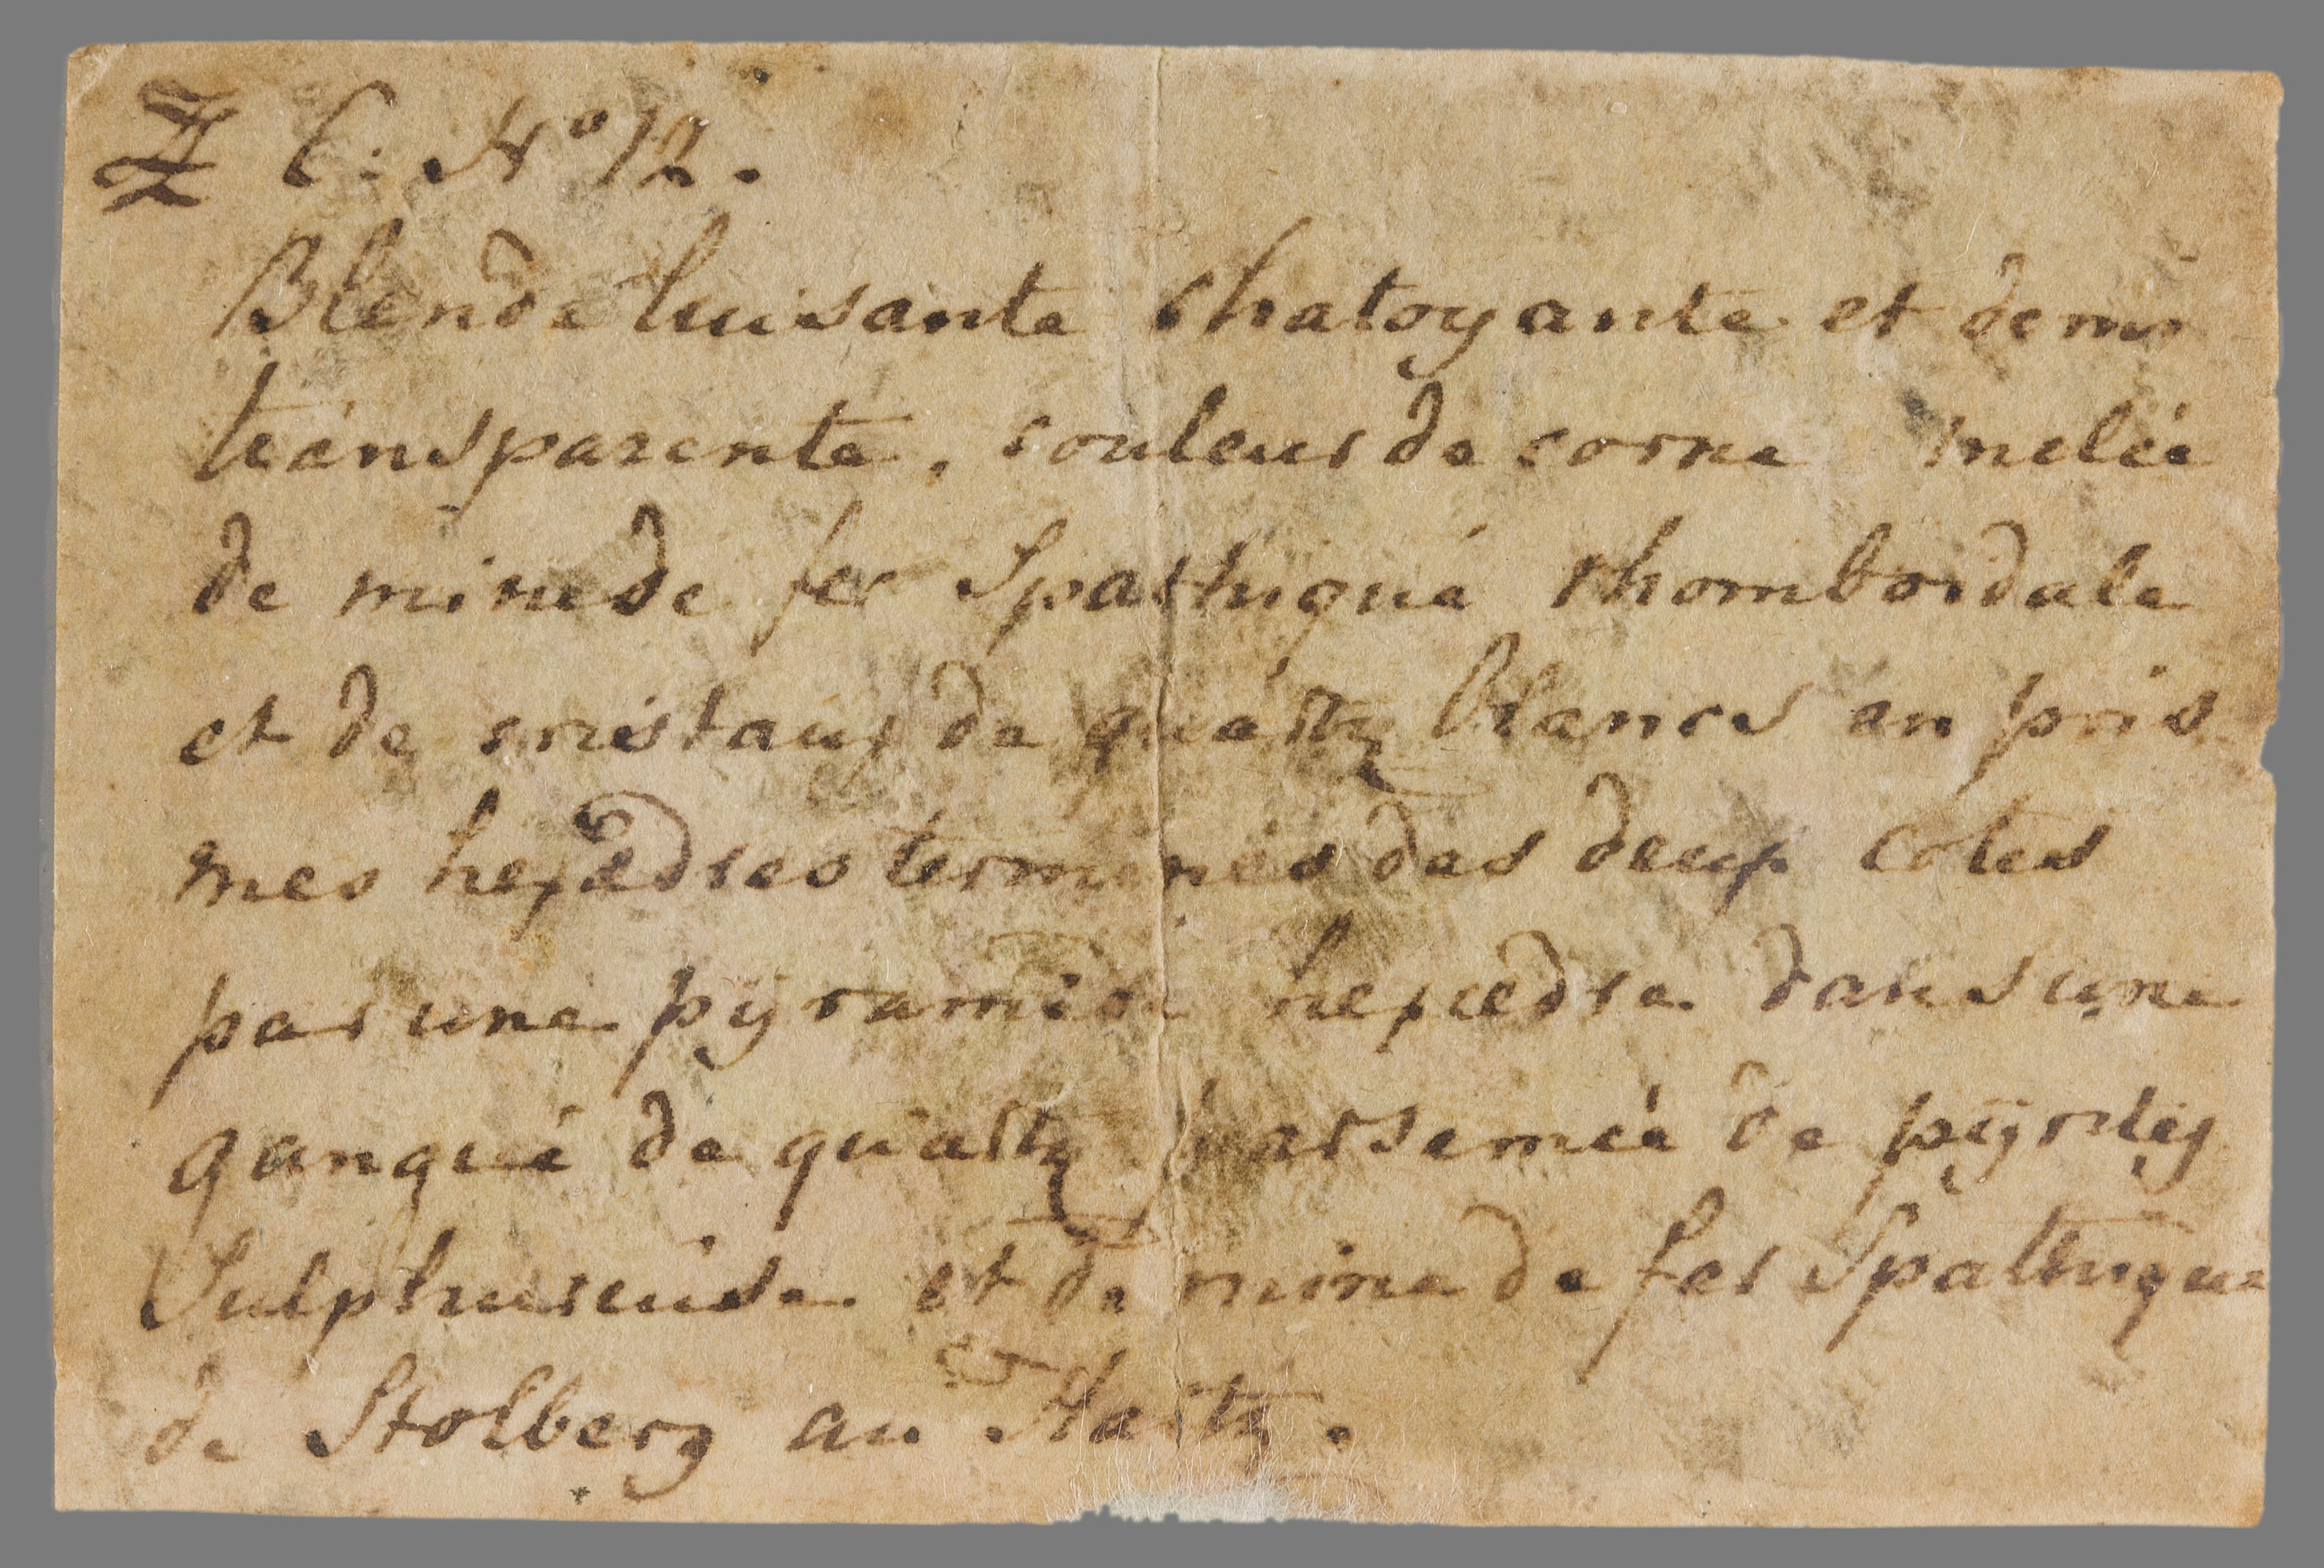 C: No 12.
Blende luisante chatoyante et demi
transparente, couleur de corne melée
de mine de fer Spathique rhomboidale
et de cristaux de quartz blancs en pris
mes hexædres terminés des deux cotes
par une pÿramide hexædre dans une
gangue de quartz parsemée de pÿrites
Sulphureuse et de mine de fer Spathique
de Stolberg au Hartz.